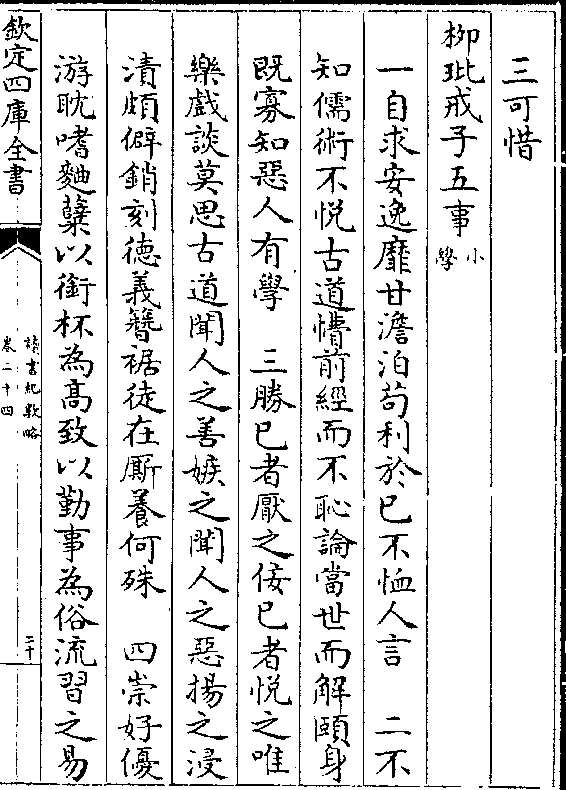 三可惜
柳玭戒子五事小學
一自求安逸靡甘澹泊苟利於已不恤人言　二不
知儒術不悅古道懵前經而不恥論當世而解頤身
既寡知惡人有學　三勝已者厭之佞已者悅之唯
樂戲談莫思古道聞人之善嫉之聞人之惡揚之浸
漬頗僻銷刻德義簪裾徒在厮養何殊　四崇好優
游耽嗜麯糵以銜杯為高致以勤事為俗流習之易
欽定四庫全書
讀書紀數略
卷二十四
二十